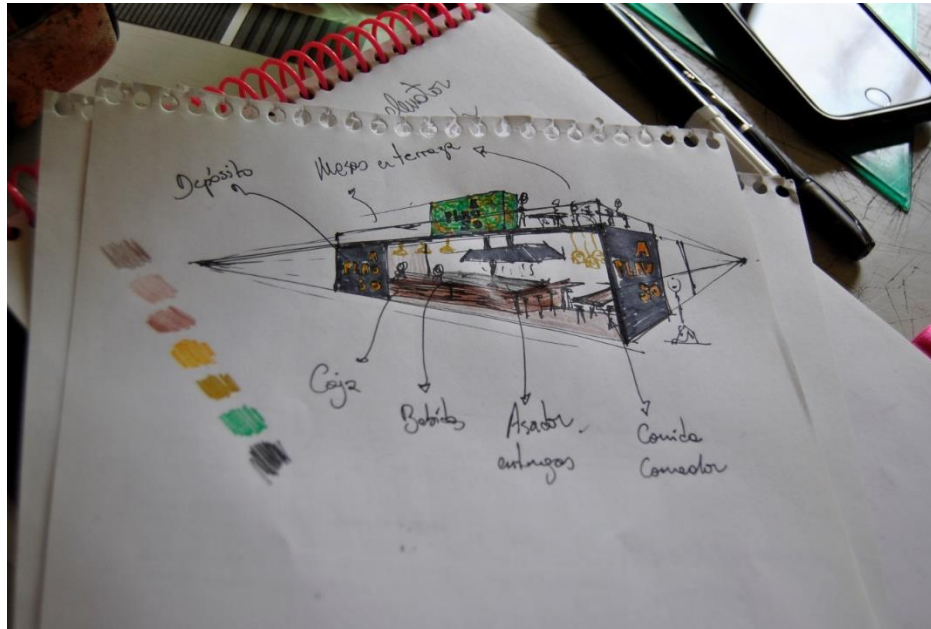 Depósito
Mesas en terraza
A
PLAU
SO
A
PLAU
SO
A
PLAU
SO
Caja
Bebidas
Asador.
entregas
Comida
Comedor